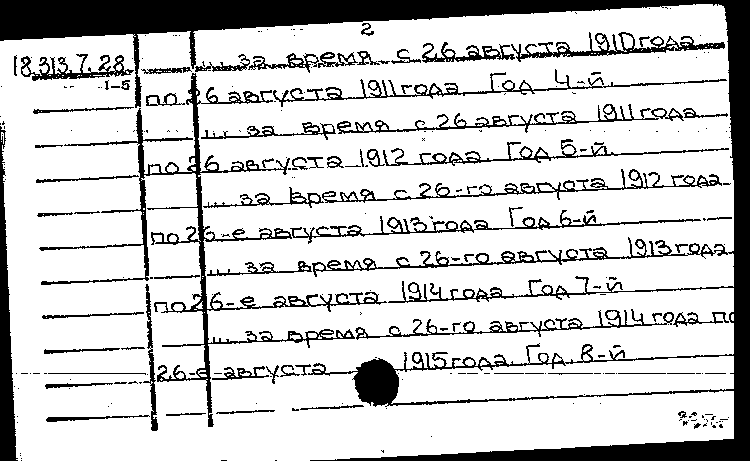 2
18.313.7.28 ... за время с 26 августа 1910 года
1-5 по 26 августа 1911 года. Год 4-й.
... за время с 26 августа 1911 года
по 26 августа 1912 года. Год 5-й.
... за время с 26-го августа 1912 года
по 26-е августа 1913 года Год 6-й
... за время с 26-го августа 1913 года
по 26-е августа 1914 года. Год 7-й
... за время с 26-го августа 1914 года по
26-е августа 1915 года. Год 8-й